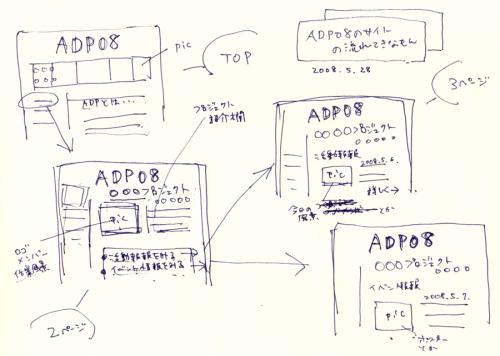 ADP08
pic
TOP
○○○
○○○
ADPとは・・・
ADP08のサイト
の流れてきなもん
2008.5.28
プロジェクト
紹介欄
ADP08
○○○プロジェクト
○○○○
pic
・活動報告をみる
・イベント情報をみる
ロゴ
メンバー
作業風景
2ページ
3ページ
ADP08
○○○プロジェクト
○○○○○
活動報告
2008.5.6.
pic
詳しく→
今日の
風景
とか
ADP08
○○○プロジェクト
○○○○
イベント情報
2008.5.7.
pic
ポスター
とか